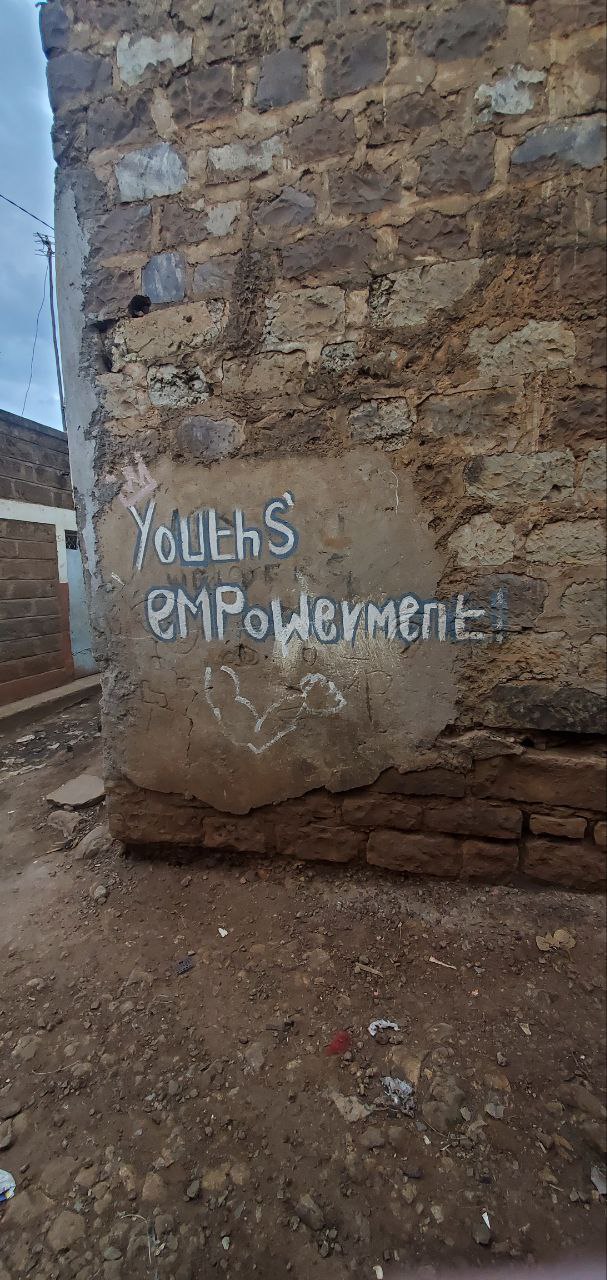 Youths'
emPowerment!